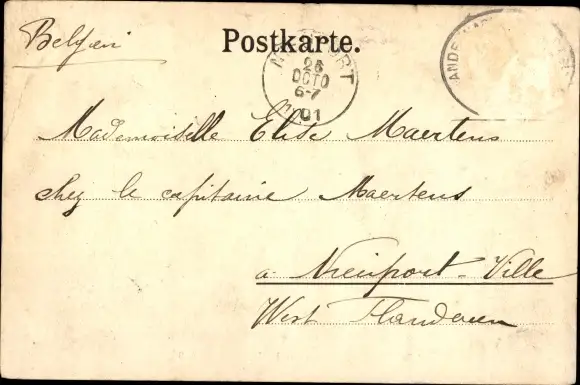 Belgien
Postkarte.
N PORT
26
OCTO
6-7
01
ANDE
Mademoiselle Elise Maertens
chez le capitaine Maertens
a Nieuport-Ville
West Flanderen